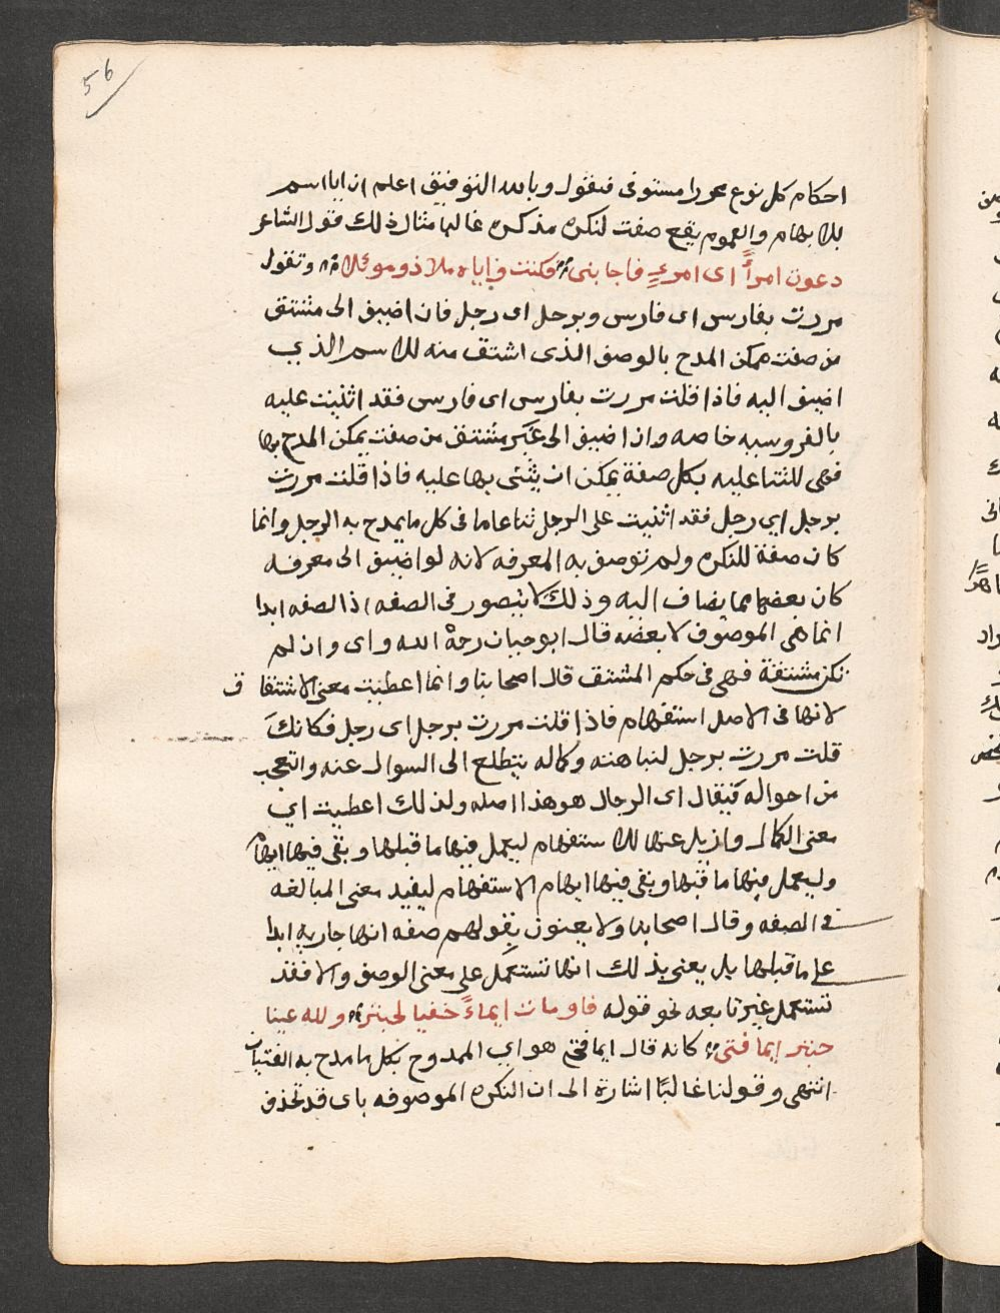 56
احكام كل نوع محررا مستوفى فيقول وبالله التوفيق اعلم ان ايا اسم
للابهام والعموم يقع صفت لنكره مذكره غالبا مثال ذلك قول الشاعر
دعوت امرأً اى امرءٍ فاجابنى وكنت واياه ملاذ وموئلا وتقول
مررت بفارس اى فارس وبرجل اى رجل فان اضيف الى مشتق
من صفت يمكن المدح بالوصف الذى اشتق منه للاسم الذي
اضيف اليه فاذا قلت مررت بفارس اى فارس فقد اثنيت عليه
بالفروسيه خاصه وان اضيف الى غير مشتق من صفت يمكن المدح بها
فهى للثنا عليه بكل صفة يمكن ان يثنى بها عليه فاذا قلت مررت
برجل اي رجل فقد اثنيت على الرجل ثنا عاما فى كل ما يمدح به الرجل وانما
كان صفة للنكره ولم توصف به المعرفه لانه لو اضيف الى معرفه
كان بعضها مما يضاف اليه وذلك لا يتصور فى الصفه اذ الصفه ابدا
انما هى الموصوف لا بعضه قال ابو حيان رحمة الله واى وان لم
تكن مشتقة فهى فى حكم المشتق قال اصحابنا وانما اعطيت معنى الاشتقا ق
لانها فى الاصل استفهام فاذا قلت مررت برجل اى رجل فكانكَ
قلت مررت برجل لنباهته وكماله يتطلع الى السوال عنه والتعجب
من احواله فيقال اى الرجال هو هذا اصله ولذلك اعطيت اي
معنى الكمال وازيل عنها للاستفهام ليعمل فيها ما قبلها وبقى فيها ابهام
وليعمل فيها ما قبها وبقى فيها ابهام الاستفهام ليفيد معنى المبالغه
فى الصفه وقال اصحابنا ولا يعنون بقولهم صفه انها جاريه ابدا
على ما قبلها بل يعنى بذلك انها تستعمل على معنى الوصف والا فقد
تستعمل غير تابعه نحو قوله فاومات ايماءً خفيا لحبتر ولله عينا
حبتر ايما فتى كانه قال ايما فتى هو اي الممدوح بكل ما مدح به الفتيان
انتهى وقولنا غالبًا اشارة الى ان النكره الموصوفه باى قد تحذف